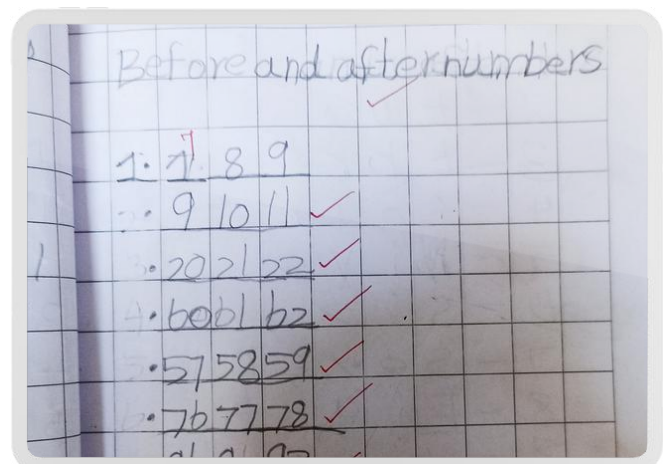 Before and after numbers
1. 7 8 9
2. 9 10 11
3. 20 21 22
4. 60 61 62
5. 57 58 59
6. 76 77 78